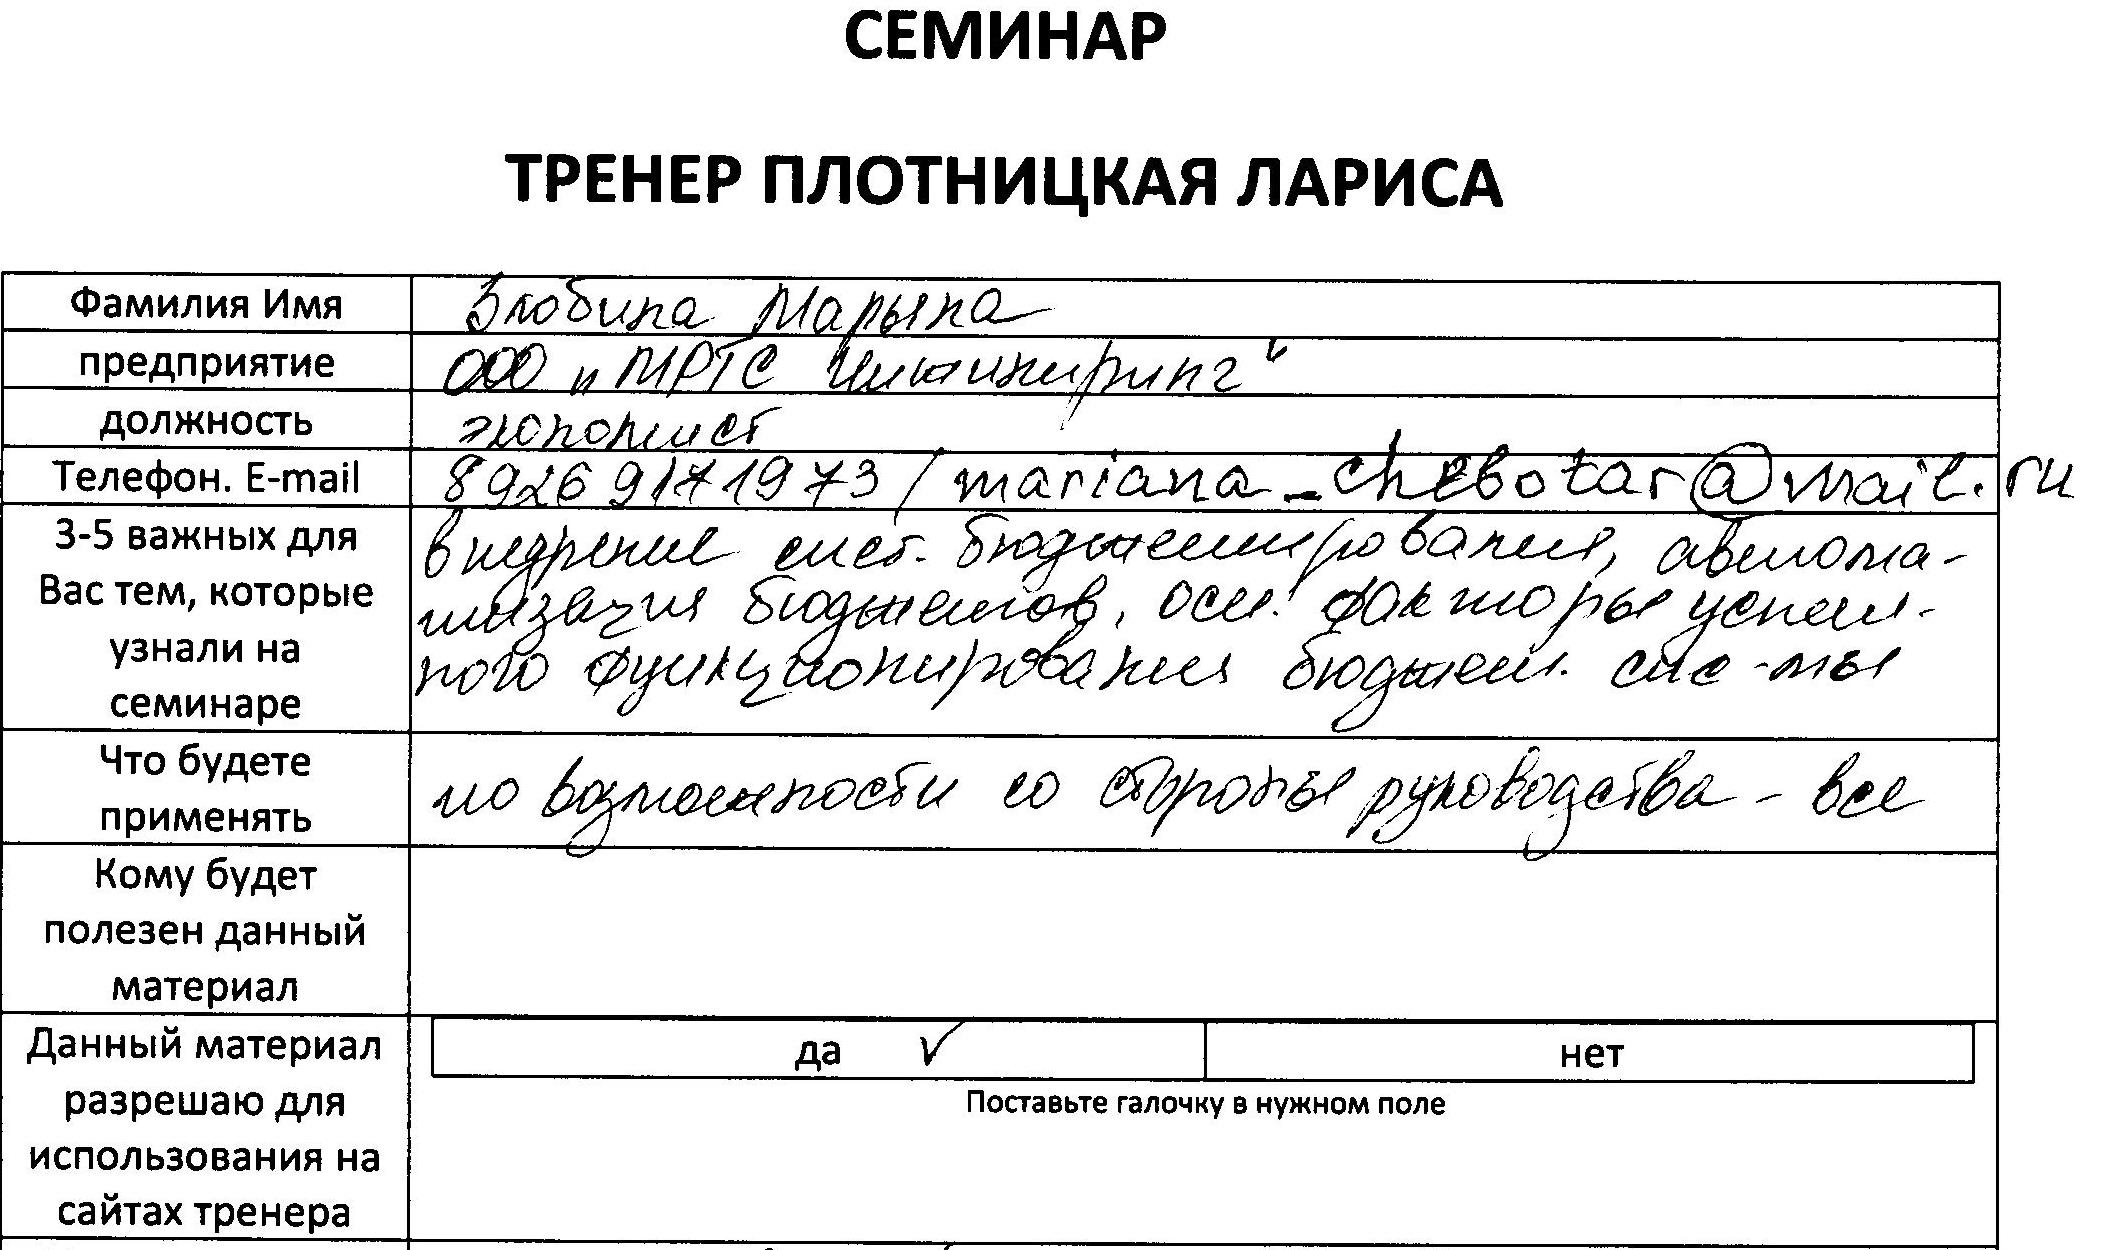 СЕМИНАР
ТРЕНЕР ПЛОТНИЦКАЯ ЛАРИСА
Фамилия Имя
Злобина Марьяна
предприятие
ООО "МРТС Инжиниринг"
должность
экономист
Телефон. E-mail
89269171973 / mariana_chebotar@mail.ru
3-5 важных для
Вас тем, которые
узнали на
семинаре
внедрение сист. бюджетирования, автома-
тизация бюджетов, осн. факторы успеш-
ного функционирования бюджетн. сис-мы
Что будете
применять
по возможности со стороны руководства - все
Кому будет
полезен данный
материал
Данный материал
разрешаю для
использования на
сайтах тренера
да ✓ нет
Поставьте галочку в нужном поле